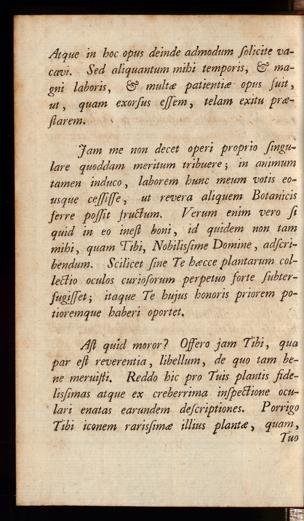 Atque in hoc opus deinde admodum ſolicite va-
cavi. Sed aliquantum mihi temporis, & ma-
gni laboris, & multæ patientiæ opus fuit,
ut, quam exorſus eſſem, telam exitu præ-
ſtarem.
Jam me non decet operi proprio ſingu-
lare quoddam meritum tribuere; in animum
tamen induco, laborem hunc meum votis eo-
usque ceſſiſſe, ut revera aliquem Botanicis
ferre poſſit fructum. Verum enim vero ſi
quid in eo ineſt boni, id quidem non tam
mihi, quam Tibi, Nobiliſſime Domine, adſcri-
bendum. Scilicet ſine Te hæcce plantarum col-
lectio oculos curioſorum perpetuo forte ſubter-
fugiſſet; itaque Te hujus honoris priorem po-
tioremque haberi oportet.
Aſt quid moror? Offero jam Tibi, qua
par eſt reverentia, libellum, de quo tam be-
ne meruiſti. Reddo hic pro Tuis plantis fide-
liſſimas atque ex creberrima inſpectione ocu-
lari enatas earundem deſcriptiones. Porrigo
Tibi iconem rariſſimæ illius plantæ, quam,
Tuo